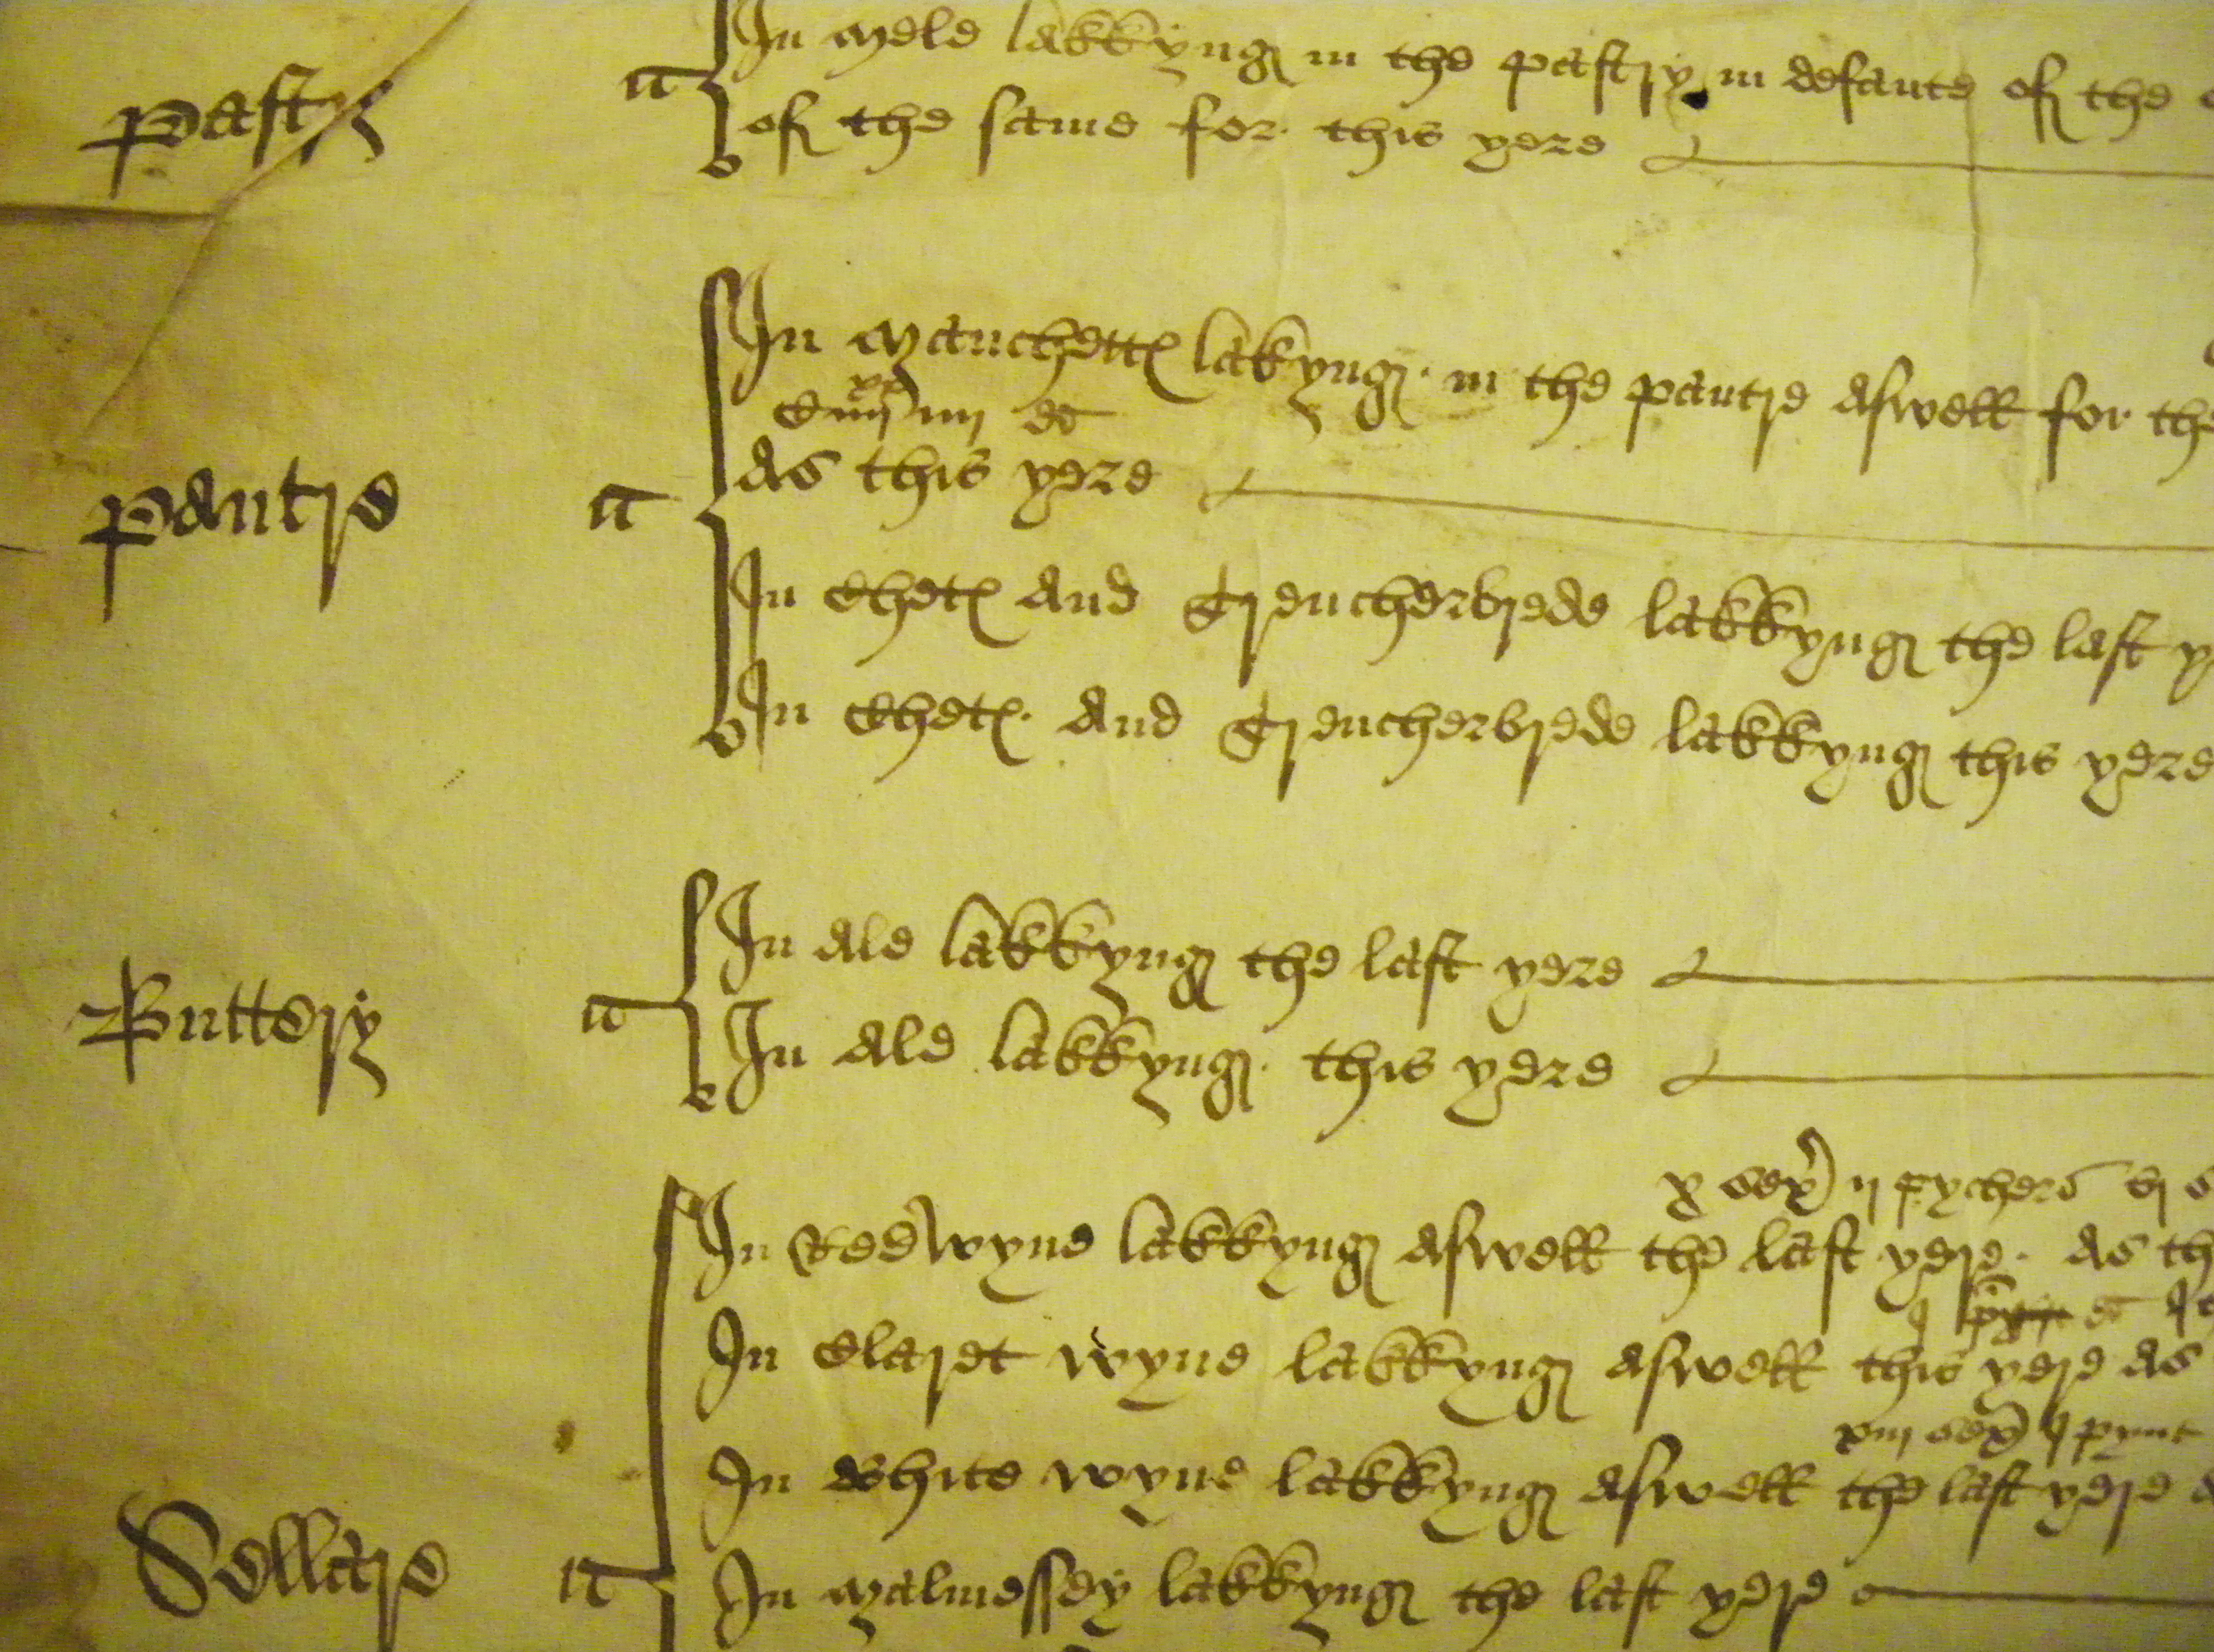 Pastry
it
In mele lakkyng in the pastry in defaute of the
of the same for this yere
Pantre
it
In manchett lakyng in the pantre aswell for the
as this yere
In Chet and Trencherbrede lakkyng the last
In Chet and Trencherbrede lakkyng this yere
Buttery
it
In ale lakkyng the last yere
In ale lakkyng this yere
x sex ij pychers
In Red wyne lakkyng aswell the last yere as
In Claret wyne lakkyng aswell this yere as
xiij sex j pynt
In White wyne lakkyng aswell the last yere
Sellare
it
In malmessey lakkyng the last yere